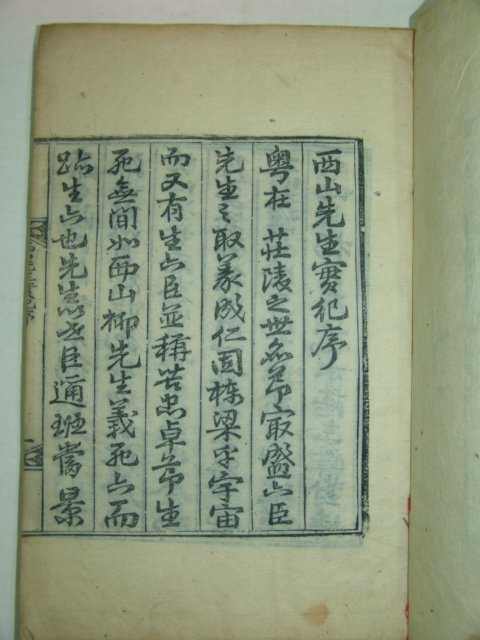 西山先生實紀序
粤在 莊陵之世名節寂盛六臣
先生之取義成仁固棟梁乎宇宙
而又有生六臣並稱苦忠卓節生
死無間如西山柳先生義死六而
跡生六也先生以世臣通班當景